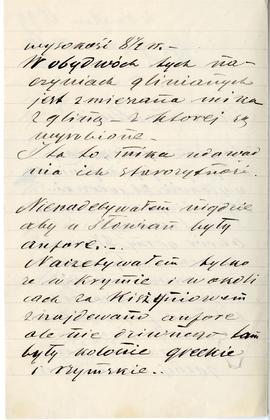 wysokość 8½ c.–
W obydwóch tych na-
czyniach glinianych
jest zmieszana mika
z gliną – z ktorej są
wyrobione.
I ta to mika udowad
nia ich starożytność.
Nienadebywałem nigdzie
aby u Słowian były
anfore. –
Nadebywałem tylko
że w Krymie i w okoli
cach za Kiszyniowem
znajdowano anfore
ale nic dziwnego tam
były kolonie greckie
i rzymskie..